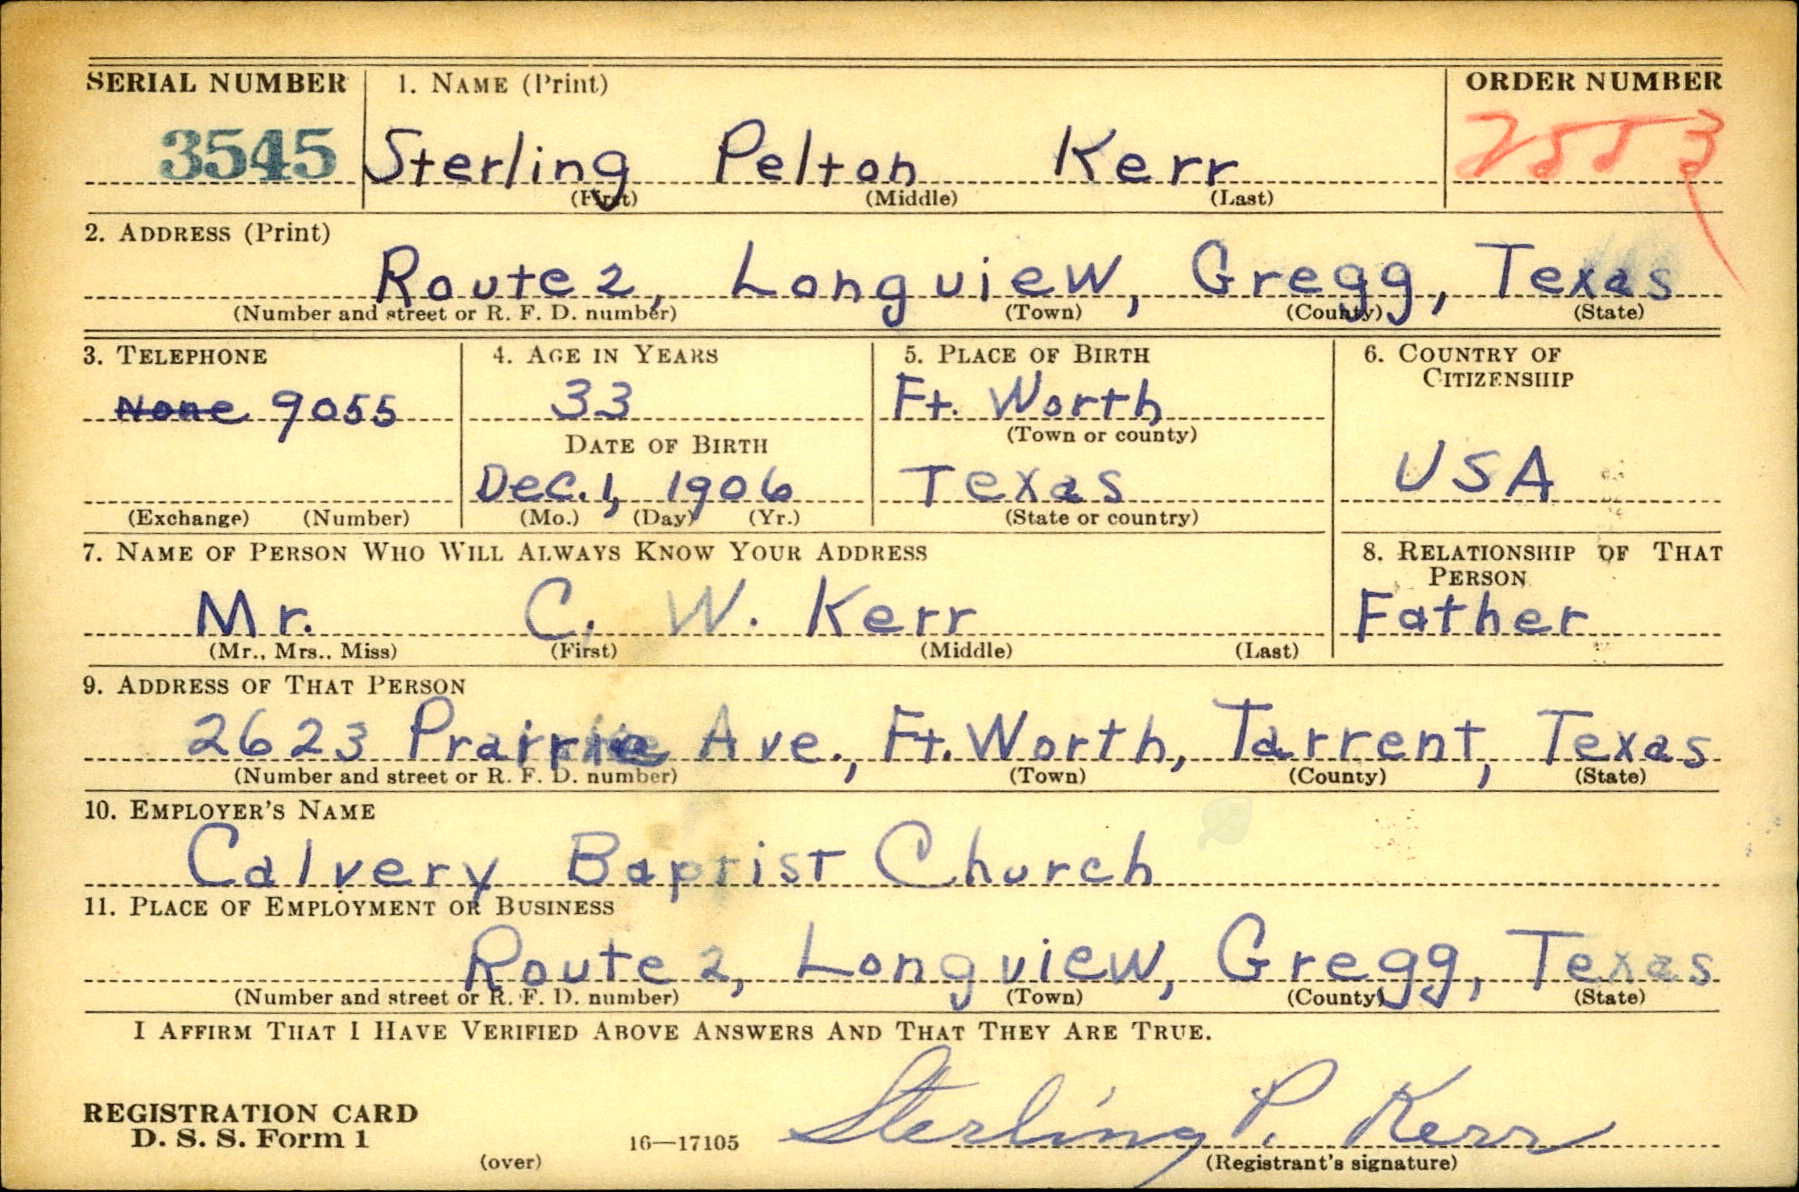 SERIAL NUMBER 1. NAME (Print) ORDER NUMBER
3545 Sterling Pelton Kerr 2553
(First) (Middle) (Last)
2. ADDRESS (Print)
Route 2, Longview, Gregg, Texas
(Number and street or R. F. D. number) (Town) (County) (State)
3. TELEPHONE 4. AGE IN YEARS 5. PLACE OF BIRTH 6. COUNTRY OF
CITIZENSHIP
None 9055 33 Ft. Worth
(Town or county)
DATE OF BIRTH
Dec. 1, 1906 Texas USA
(Exchange) (Number) (Mo.) (Day) (Yr.) (State or country)
7. NAME OF PERSON WHO WILL ALWAYS KNOW YOUR ADDRESS 8. RELATIONSHIP OF THAT
PERSON
Mr. C. W. Kerr Father
(Mr., Mrs., Miss) (First) (Middle) (Last)
9. ADDRESS OF THAT PERSON
2623 Prairie Ave., Ft. Worth, Tarrent, Texas
(Number and street or R. F. D. number) (Town) (County) (State)
10. EMPLOYER'S NAME
Calvery Baptist Church
11. PLACE OF EMPLOYMENT OR BUSINESS
Route 2, Longview, Gregg, Texas
(Number and street or R. F. D. number) (Town) (County) (State)
I AFFIRM THAT I HAVE VERIFIED ABOVE ANSWERS AND THAT THEY ARE TRUE.
REGISTRATION CARD
D. S. S. Form 1 16—17105 Sterling P. Kerr
(over) (Registrant's signature)